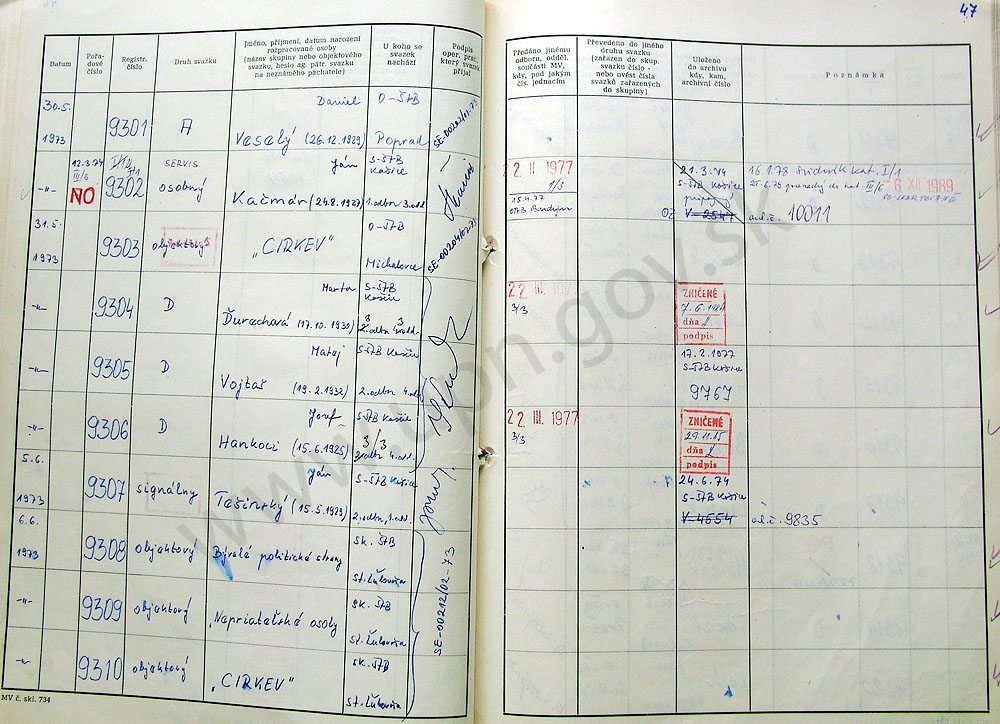 47
Datum
Pořa-
dové
číslo
Registr.
číslo
Druh svazku
Jméno, příjmení, datum narození
rozpracované osoby
(název skupiny nebo objektového
svazku, heslo ag. pátr. svazku
na neznámého pachatele)
U koho se
svazek
nachází
Podpis
oper. prac.,
který svazek
přijal
Předáno jinému
odboru, odděl.
součásti MV,
kdy, pod jakým
čís. jednacím
Převedeno do jiného
druhu svazku
(zařazen do skup.
svazku číslo -
nebo uvést čísla
svazků zařazených
do skupiny)
Uloženo
do archivu
kdy, kam,
archivní číslo
Poznámka
30.5.
1973
9301
A
Daniel
Veselý (26.12.1929)
O-ŠTB
Poprad
SE-00202/02-73
-"-
12.3.74
III/6
NO
9302
SERVIS
osobný
Ján
Kačmár (24.8.1927)
S-ŠTB
Košice
1. odbor 3. odd.
22 II 1977
1/3
15.4.77
21.3.74
S-ŠTB Košice
V-2547
16.1.78 Svidník kat. I/1
6 XII 1989
10011
31.5.
1973
9303
objektový
"CIRKEV"
O-ŠTB
Michalovce
SE-00204/02-73
-"-
9304
D
Marta
Ďurechová (17.10.1930)
S-ŠTB
Košice
22. III. 197
3/3
ZNIČENÉ
dňa
podpis
-"-
9305
D
Matej
Vojtař (19.2.1932)
S-ŠTB Košice
2. odbor 4. odd.
17.2.1977
S-ŠTB Košice
9767
-"-
9306
D
Jozef
Hankoci (15.6.1925)
S-ŠTB Košice
3/3
2. odbor 4. odd.
22 III. 1977
3/3
ZNIČENÉ
29.11.85
dňa
podpis
5.6.
1973
9307
signálny
Ján
Tešinský (15.5.1929)
S-ŠTB Košice
2. odbor, 1. odd.
24.6.74
S-ŠTB Košice
V-4554
9835
6.6.
1973
9308
objektový
Bývalé politické strany
Sk. ŠTB
St. Ľubovňa
SE-00212/02-73
-"-
9309
objektový
"Nepriateľské osoby
Sk. ŠTB
St. Ľubovňa
-"-
9310
objektový
"CIRKEV"
Sk. ŠTB
St. Ľubovňa
MV č. skl. 734
www.upn.gov.sk